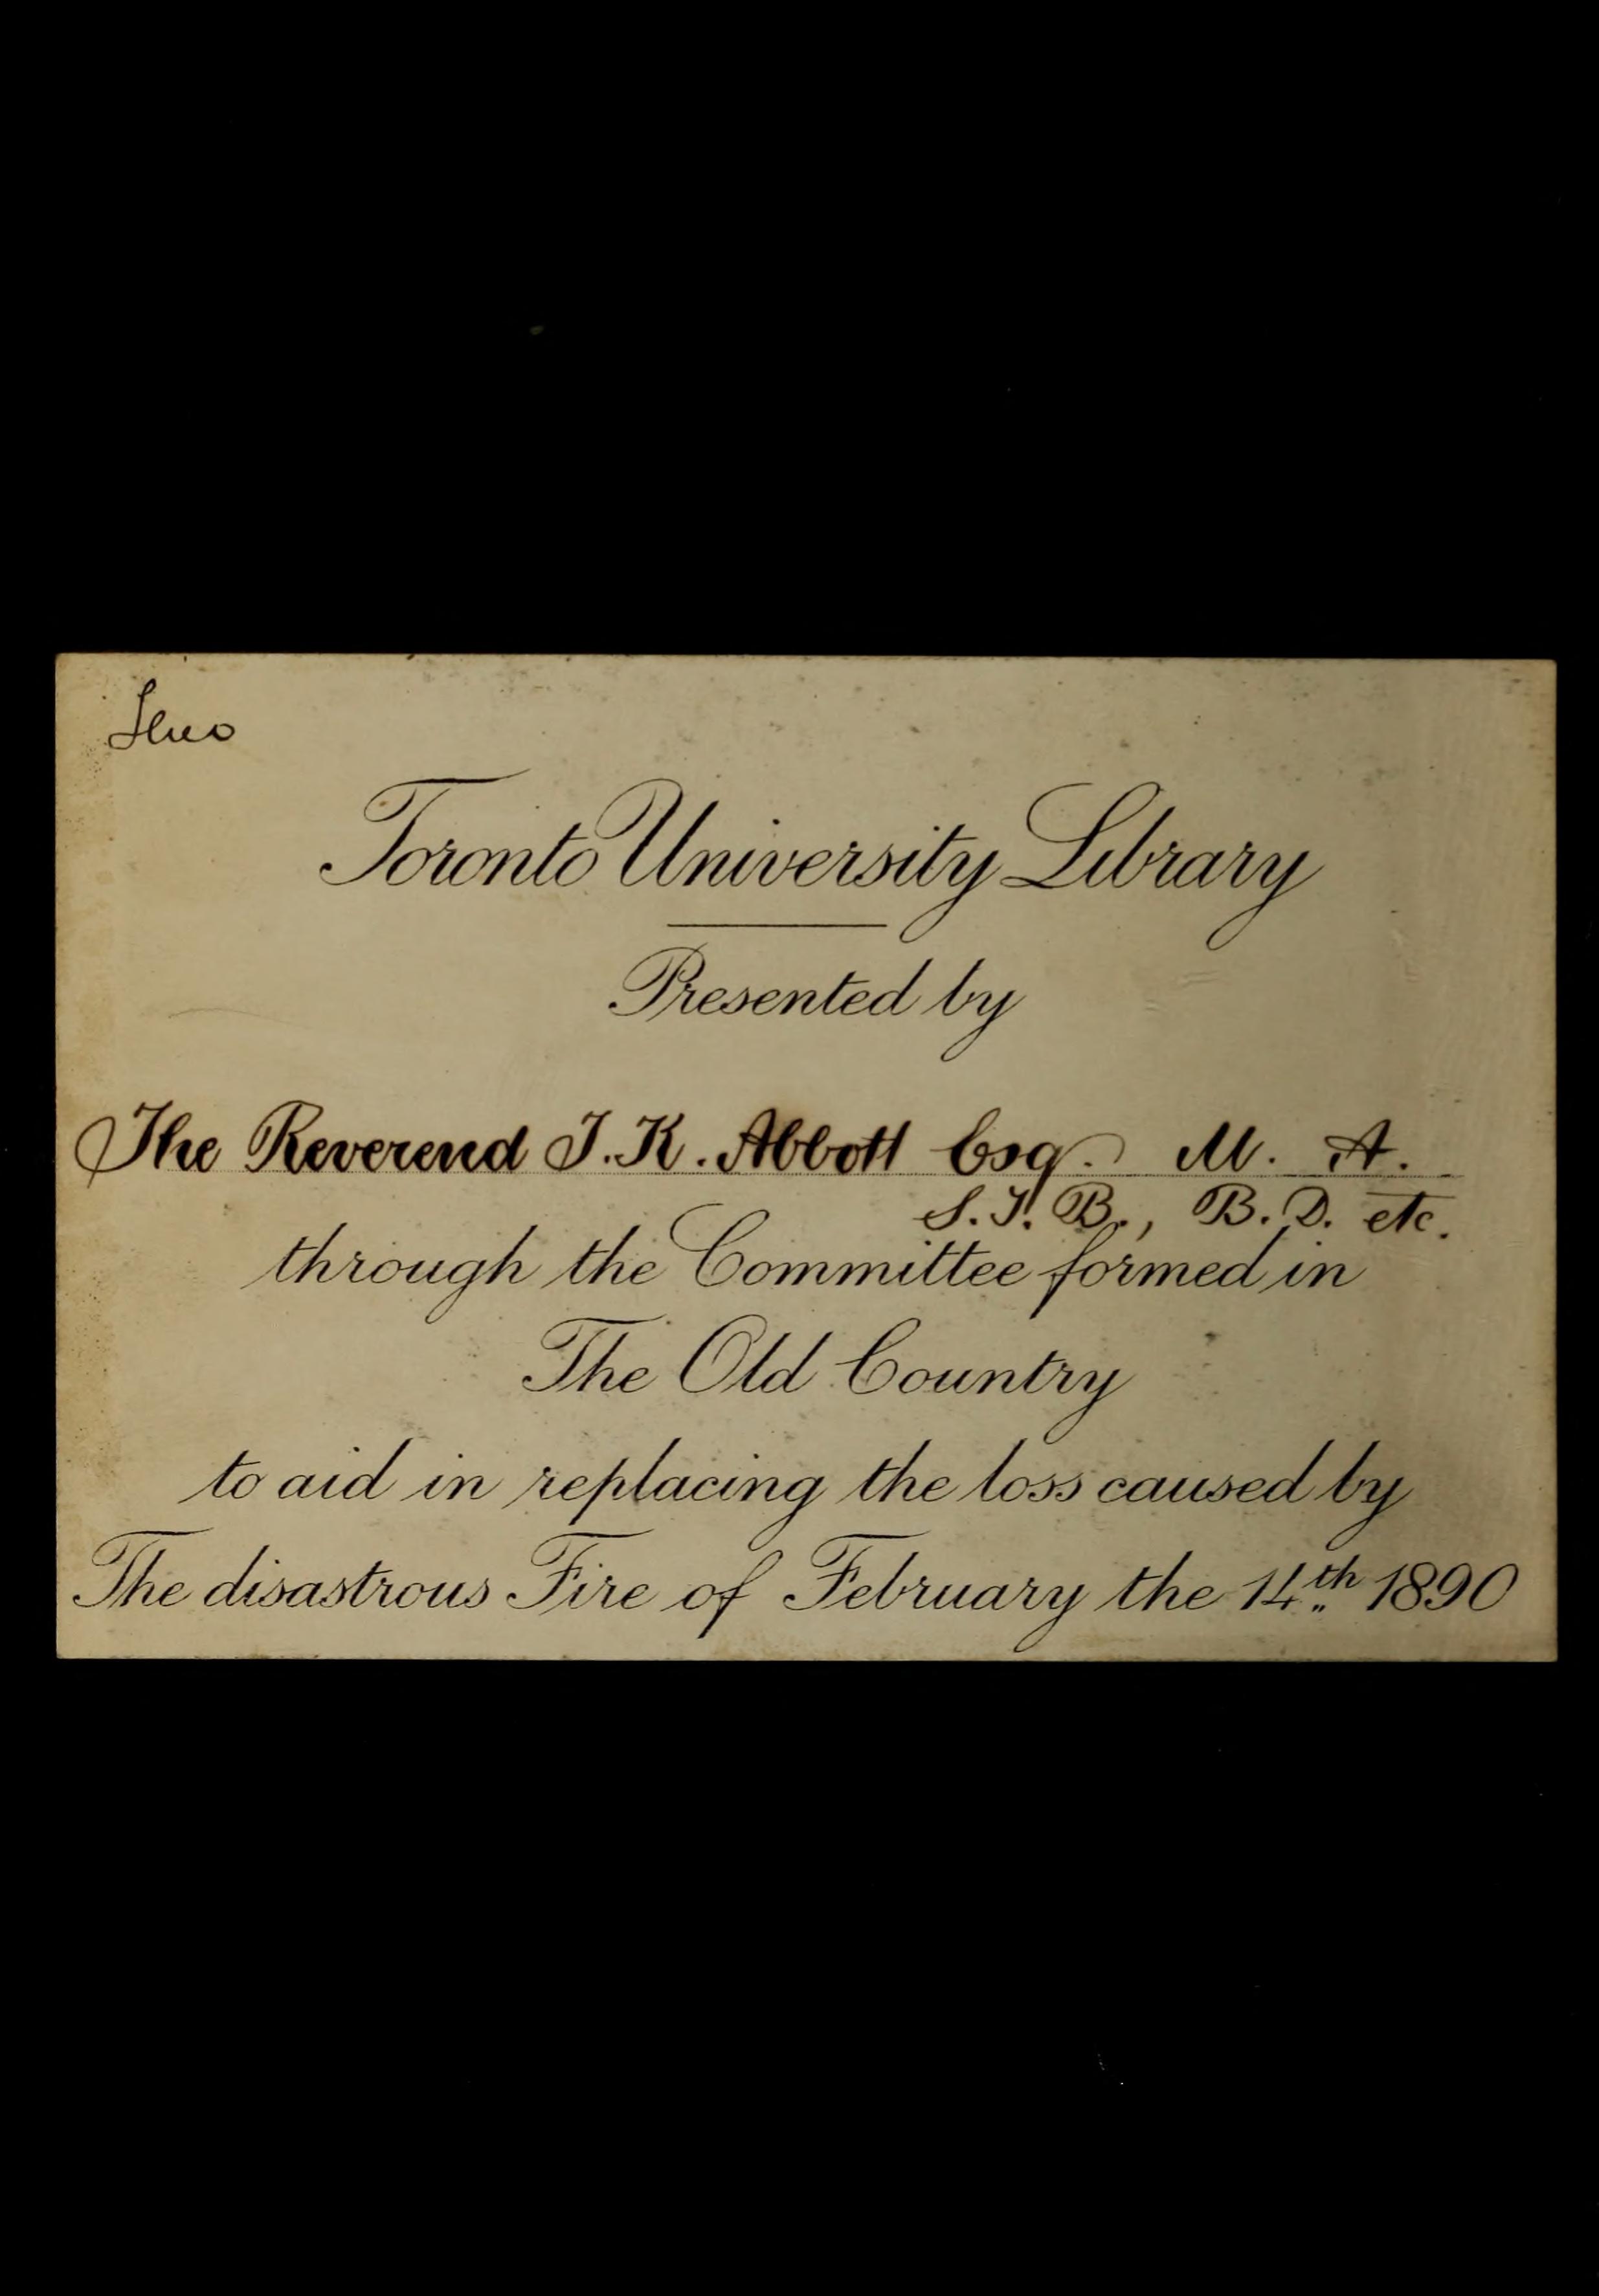 Toronto University Library
Presented by
The Reverend T. K. Abbott Esq. M. A.
S. T. B., B. D. etc.
through the Committee formed in
The Old Country
to aid in replacing the loss caused by
The disastrous Fire of February the 14th 1890